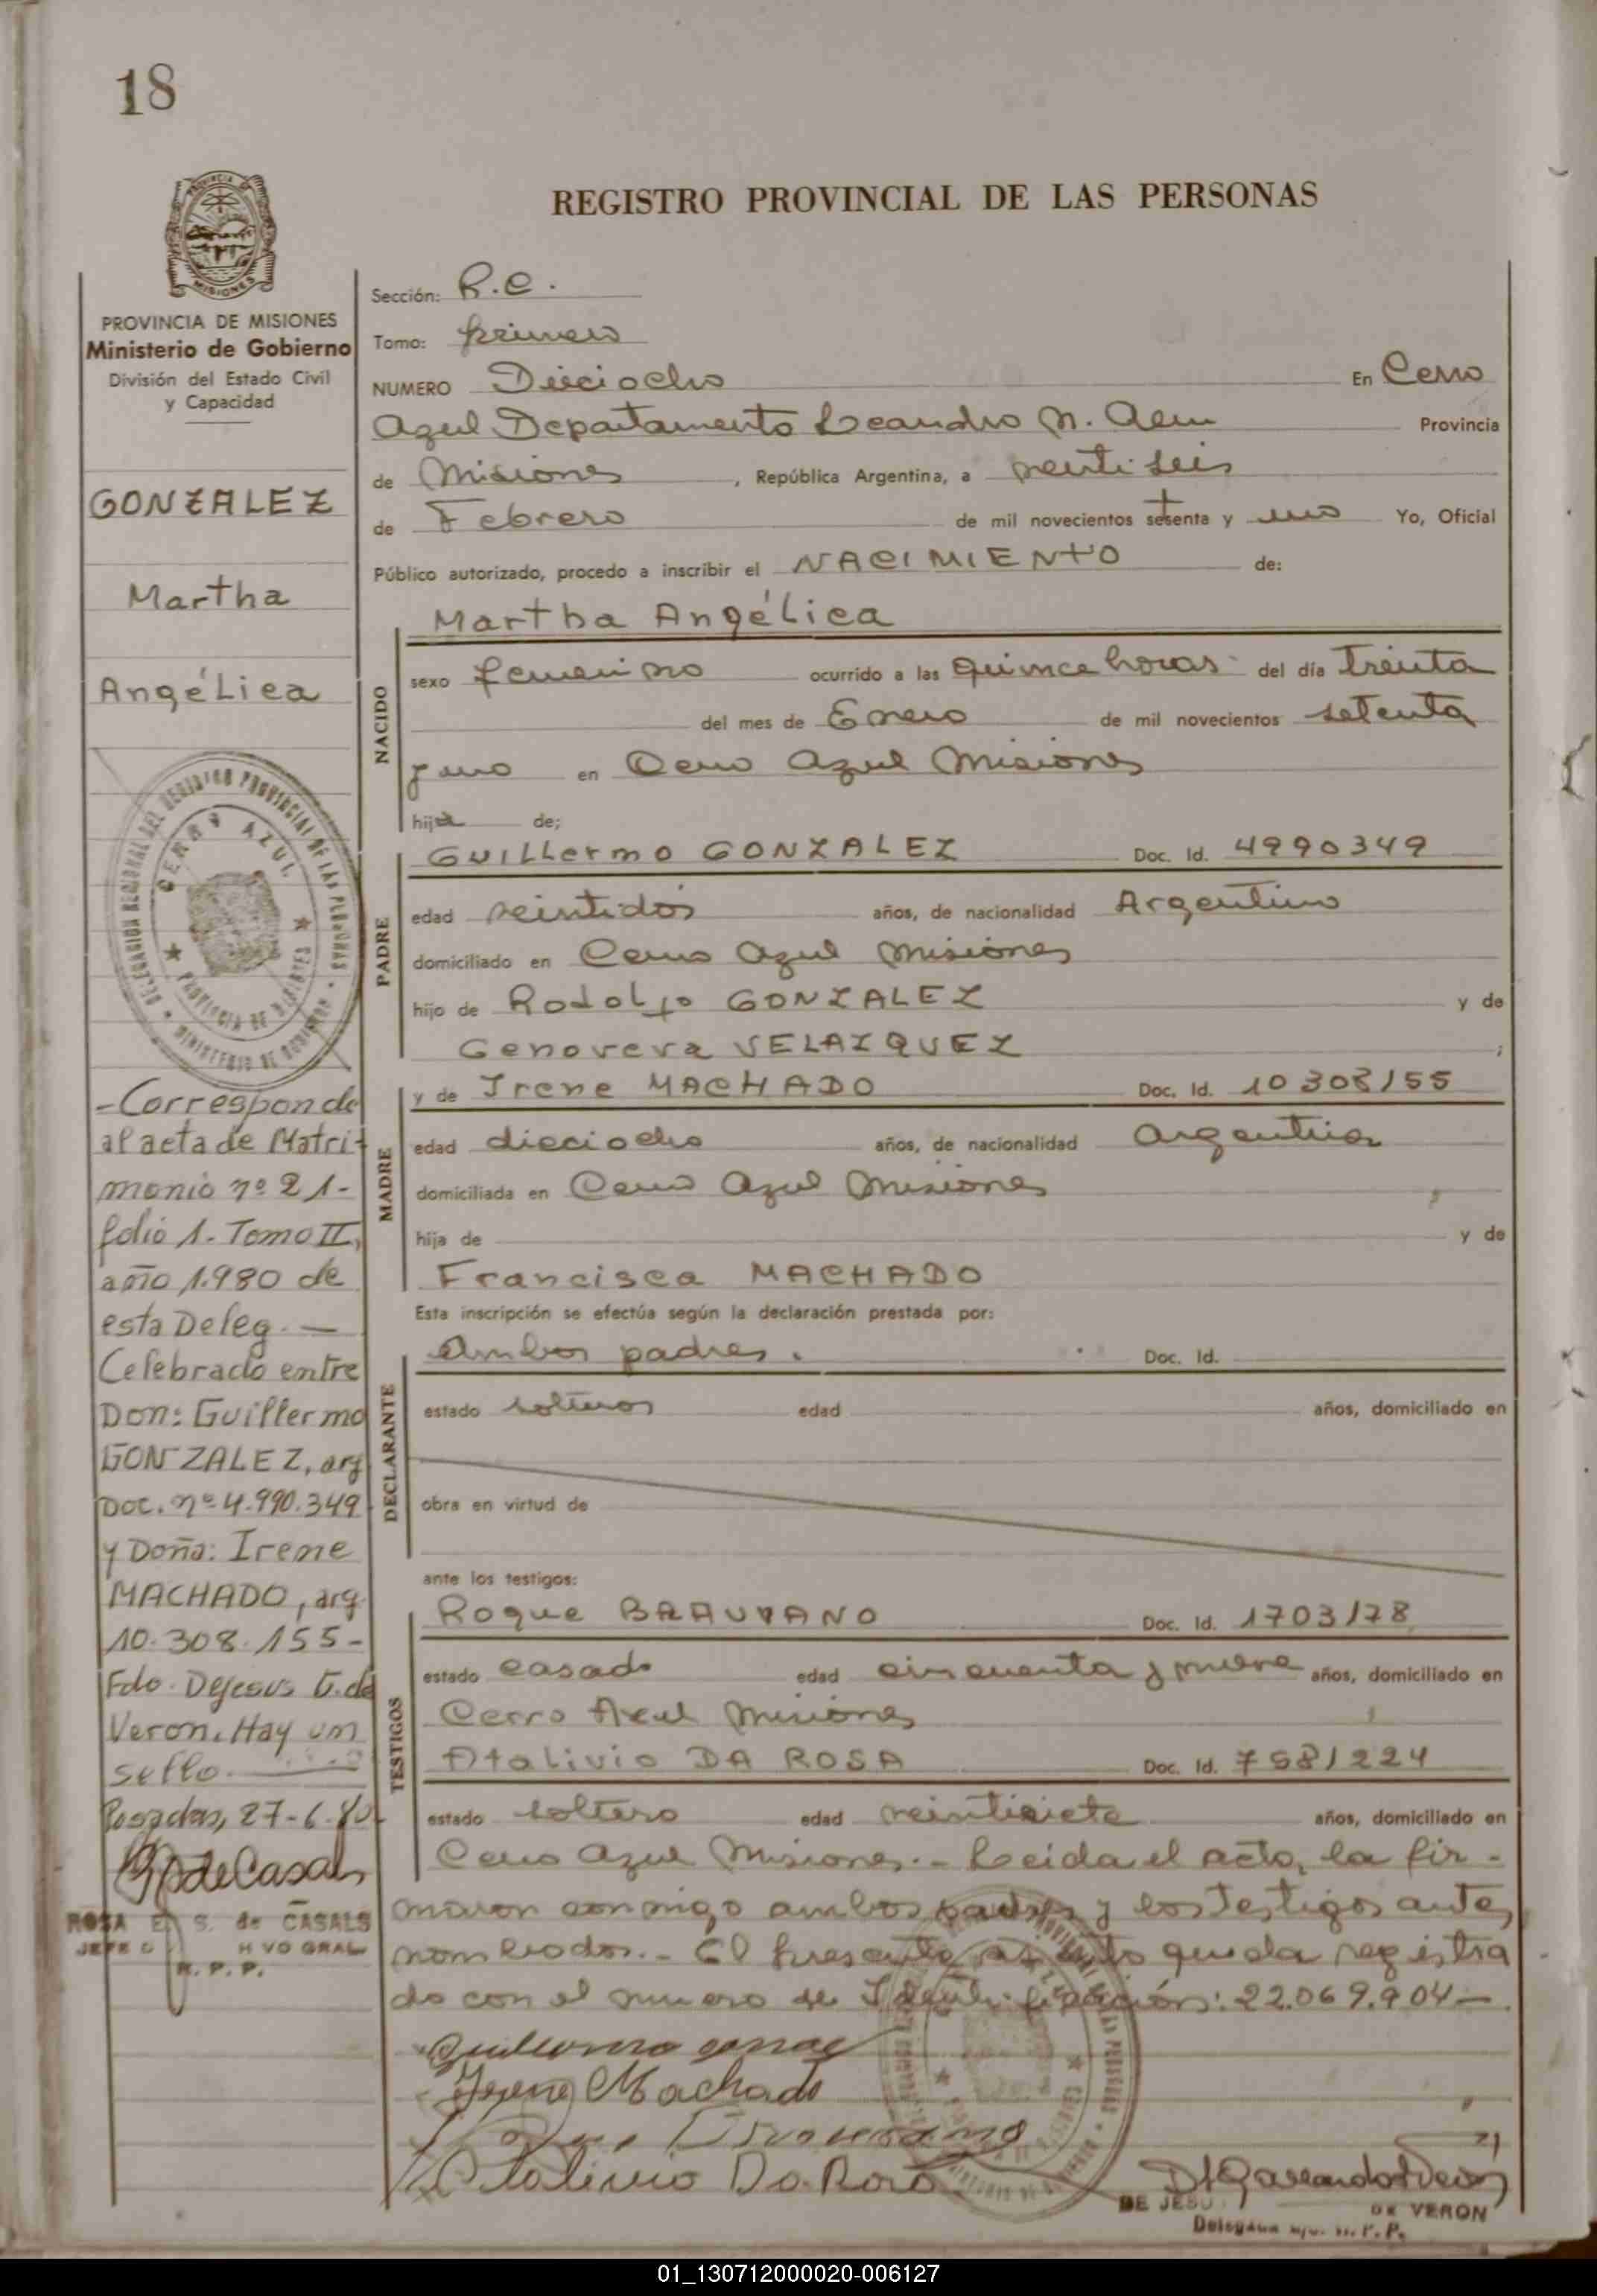 18
REGISTRO PROVINCIAL DE LAS PERSONAS
PROVINCIA DE MISIONES
Ministerio de Gobierno
División del Estado Civil
y Capacidad
GONZALEZ
Martha
Angélica
DELEGACION REGIONAL DEL REGISTRO PROVINCIAL DE LAS PERSONAS
CERRO AZUL
PROVINCIA DE MISIONES
MINISTERIO DE GOBIERNO
-Corresponde
al acta de Matri-
monio nº 21-
folio 1. Tomo II,
año 1.980 de
esta Deleg. —
Celebrado entre
Don: Guillermo
GONZALEZ, arg
Doc. nº 4.990.349
y Doña: Irene
MACHADO, arg.
10.308.155-
Fdo. Dejesus G. de
Veron. Hay un
sello.
Posadas, 27-6-80
ROSA E. S. de CASALS
R. P. P.
Sección: R.C.
Tomo: primero
NUMERO Dieciocho En Cerro
Azul Departamento Leandro N. Alem Provincia
de Misiones, República Argentina, a veintiseis
de Febrero de mil novecientos setenta y uno Yo, Oficial
Público autorizado, procedo a inscribir el NACIMIENTO de:
NACIDO
Martha Angélica
sexo femenino ocurrido a las quince horas del día treinta
del mes de Enero de mil novecientos setenta
y uno en Cerro Azul Misiones
hija de;
PADRE
Guillermo GONZALEZ Doc. Id. 4990349
edad veintidos años, de nacionalidad Argentino
domiciliado en Cerro Azul Misiones
hijo de Rodolfo GONZALEZ y de
Genoveva VELAZQUEZ ;
MADRE
y de Irene MACHADO Doc. Id. 10308155
edad dieciocho años, de nacionalidad Argentina
domiciliada en Cerro Azul Misiones
hija de y de
Francisca MACHADO
Esta inscripción se efectúa según la declaración prestada por:
DECLARANTE
Ambos padres. Doc. Id.
estado solteros edad años, domiciliado en
obra en virtud de
ante los testigos:
TESTIGOS
Roque Doc. Id. 1703178
estado casado edad cincuenta y nueve años, domiciliado en
Cerro Azul Misiones
Atalivio DA ROSA Doc. Id. 7581224
estado soltero edad veintisiete años, domiciliado en
Cerro Azul Misiones.- Leida el acto, la fir-
maron conmigo ambos padres y los testigos antes
nombrados.- El presente asiento queda registra
do con el numero de Identificación: 22.069.904-
Irene Machado
Atalivio Da Rosa
DE JESU DE VERON
01_130712000020-006127